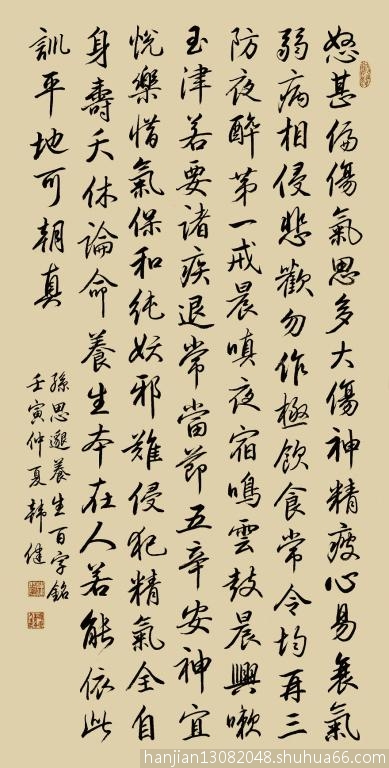 怒甚偏傷氣思多大傷神精疲心易衰氣
弱病相侵悲歡勿作極飲食常令均再三
防夜醉第一戒晨嗔夜宿鳴雲鼓晨興嗽
玉津若要諸疾退常當節五辛安神宜
悅樂惜氣保和純妖邪難侵犯精氣全自
身壽夭休論命養生本在人若能依此
訓平地可朝真
孫思邈養生百字銘
壬寅仲夏韓健
hanjian13082048.shuhua66.com